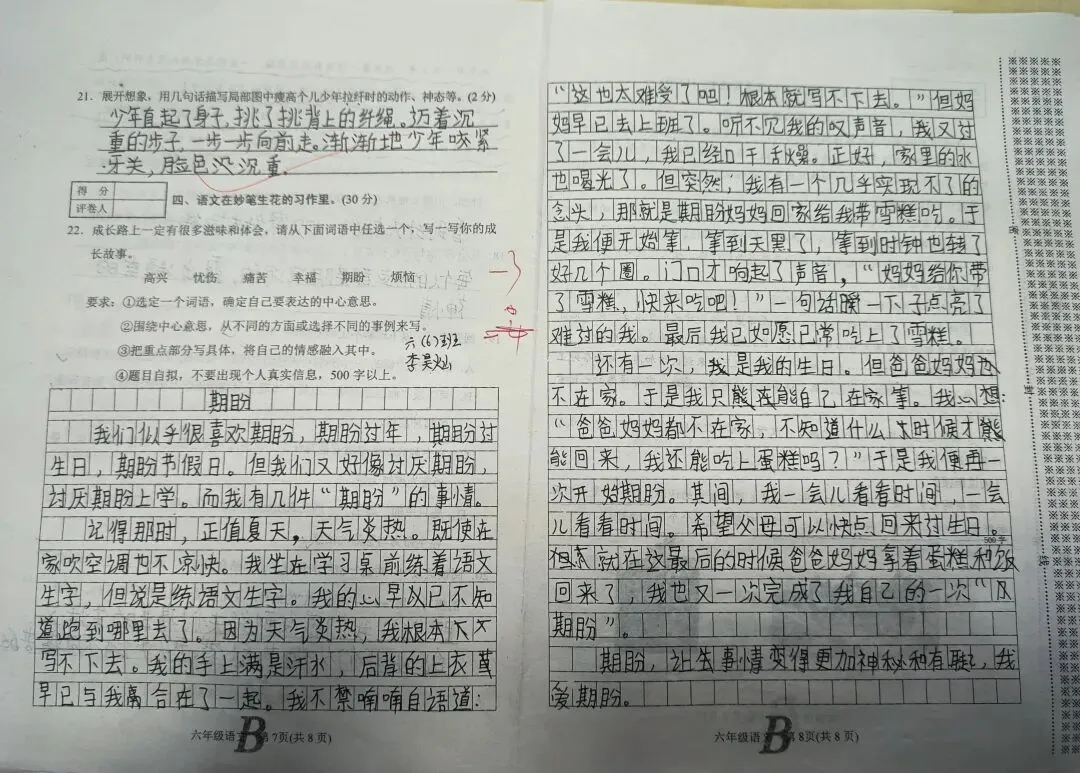 21. 展开想象，用几句话描写局部图中瘦高个儿少年拉纤时的动作、神态等。(2分)
少年直起了身子，挑了挑背上的纤绳。迈着沉
重的步子，一步一步向前走。渐渐地少年咬紧
牙关，脸色没沉重。
得 分
评卷人
四、语文在妙笔生花的习作里。(30分)
22. 成长路上一定有很多滋味和体会，请从下面词语中任选一个，写一写你的成
长故事。
高兴 忧伤 痛苦 幸福 期盼 烦恼
要求：①选定一个词语，确定自己要表达的中心意思。
②围绕中心意思，从不同的方面或选择不同的事例来写。
③把重点部分写具体，将自己的情感融入其中。
④题目自拟，不要出现个人真实信息，500字以上。
六(6)班
李昊灿
期盼
我们似乎很喜欢期盼，期盼过年，期盼过
生日，期盼节假日。但我们又好像讨厌期盼，
讨厌期盼上学。而我有几件“期盼”的事情。
记得那时，正值夏天，天气炎热。既使在
家吹空调也不凉快。我坐在学习桌前练着语文
生字，但说是练语文生字。我的心早以已不知
道跑到哪里去了。因为天气炎热，我根本
写不下去。我的手上满是汗水，后背的上衣
早已与我离合在了一起。我不禁喃喃自语道：
六年级语文 B 第7页(共8页)
“这也太难受了吧！根本就写不下去。”但妈
妈早已去上班了。听不见我的叹声音，我又过
了一会儿，我已经口干舌燥。正好，家里的水
也喝光了。但突然；我有一个几乎实现不了的
念头，那就是期盼妈妈回家给我带雪糕吃。于
是我便开始等，等到天黑了，等到时钟也转了
好几个圈。门口才响起了声音，“妈妈给你带
了雪糕，快来吃吧！”一句话瞬一下子点亮了
难过的我。最后我已如愿已常吃上了雪糕。
还有一次，我是我的生日。但爸爸妈妈
不在家。于是我只能自己在家等。我心想：
“爸爸妈妈都不在家，不知道什么时候才
能回来，我还能吃上蛋糕吗？”于是我便再一
次开始期盼。其间，我一会儿看看时间，一会
儿看看时间。希望父母可以快点回来过生日。
500字
就在这最后的时候爸爸妈妈拿着蛋糕和饭
回来了，我也又一次完成了我自己的一次“
期盼”。
期盼，让生事情变得更加神秘和有趣，我
爱期盼。
六年级语文 B 第8页(共8页)
密
封
线